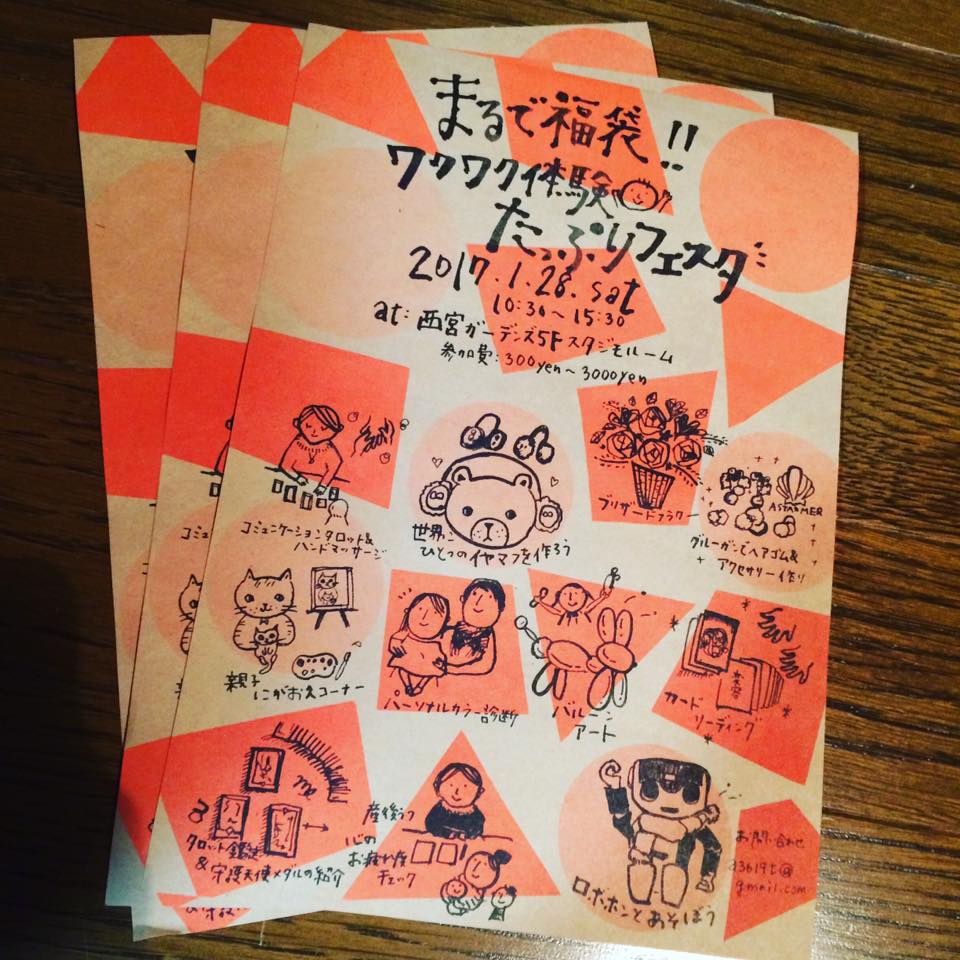 まるで福袋!!
ワクワク体験
たっぷりフェスタ
2017.1.28.sat
10:30~15:30
at: 西宮ガーデンズ5F スタジモルーム
参加費:300yen~3000yen
コミュニケーションタロット&
ハンドマッサージ
世界に
ひとつのイヤマフを作ろう
ブリザードフラワー
ASTAOMER
グルーガンでヘアゴム&
アクセサリー作り
親子
にがおえコーナー
パーソナルカラー診断
バルーン
アート
カード
リーディング
タロット鑑定
& 守護天使メダルの紹介
産後うつ
心の
お疲れ度
チェック
ロボホンとあそぼう
お問い合わせ
a3619t@
gmail.com
コミュ